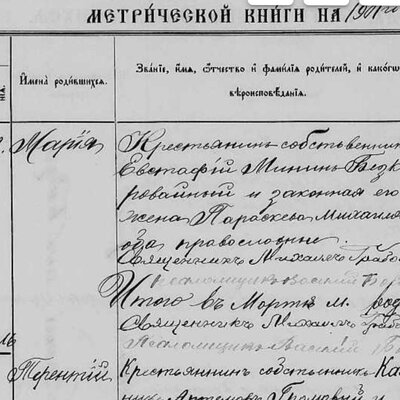 МЕТРИ́ЧЕСКОЙ КНИ́ГИ НА 1901 го
Имена̀ роди́вшихся.
Зва́нїе, и́мя, ѻ́тчество и фами́лїя роди́телей, и како́гѡ
вѣроисповѣ́данїя.
Марія
Крестьянинъ собственникъ
Евстафій Мининъ Безк
ровайный и законная его
жена Параскева Михайло
оба православные.
Священникъ Михаилъ
Псаломщикъ Василій
Итого въ Мартѣ м. род
Священникъ Михаилъ
16
Псаломщикъ Василій
Терентій
Крестьянинъ собственникъ Ка